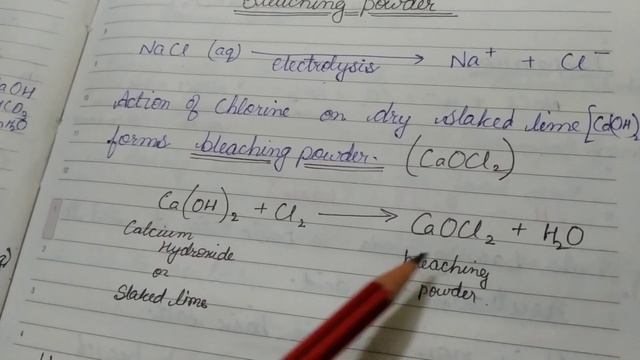 Bleaching powder
NaCl (aq) electrolysis → Na⁺ + Cl⁻
Action of Chlorine on dry slaked lime [Ca(OH)₂
forms bleaching powder. (CaOCl₂)
Ca(OH)₂ + Cl₂ → CaOCl₂ + H₂O
Calcium Hydroxide or Slaked lime
bleaching powder.
aOH